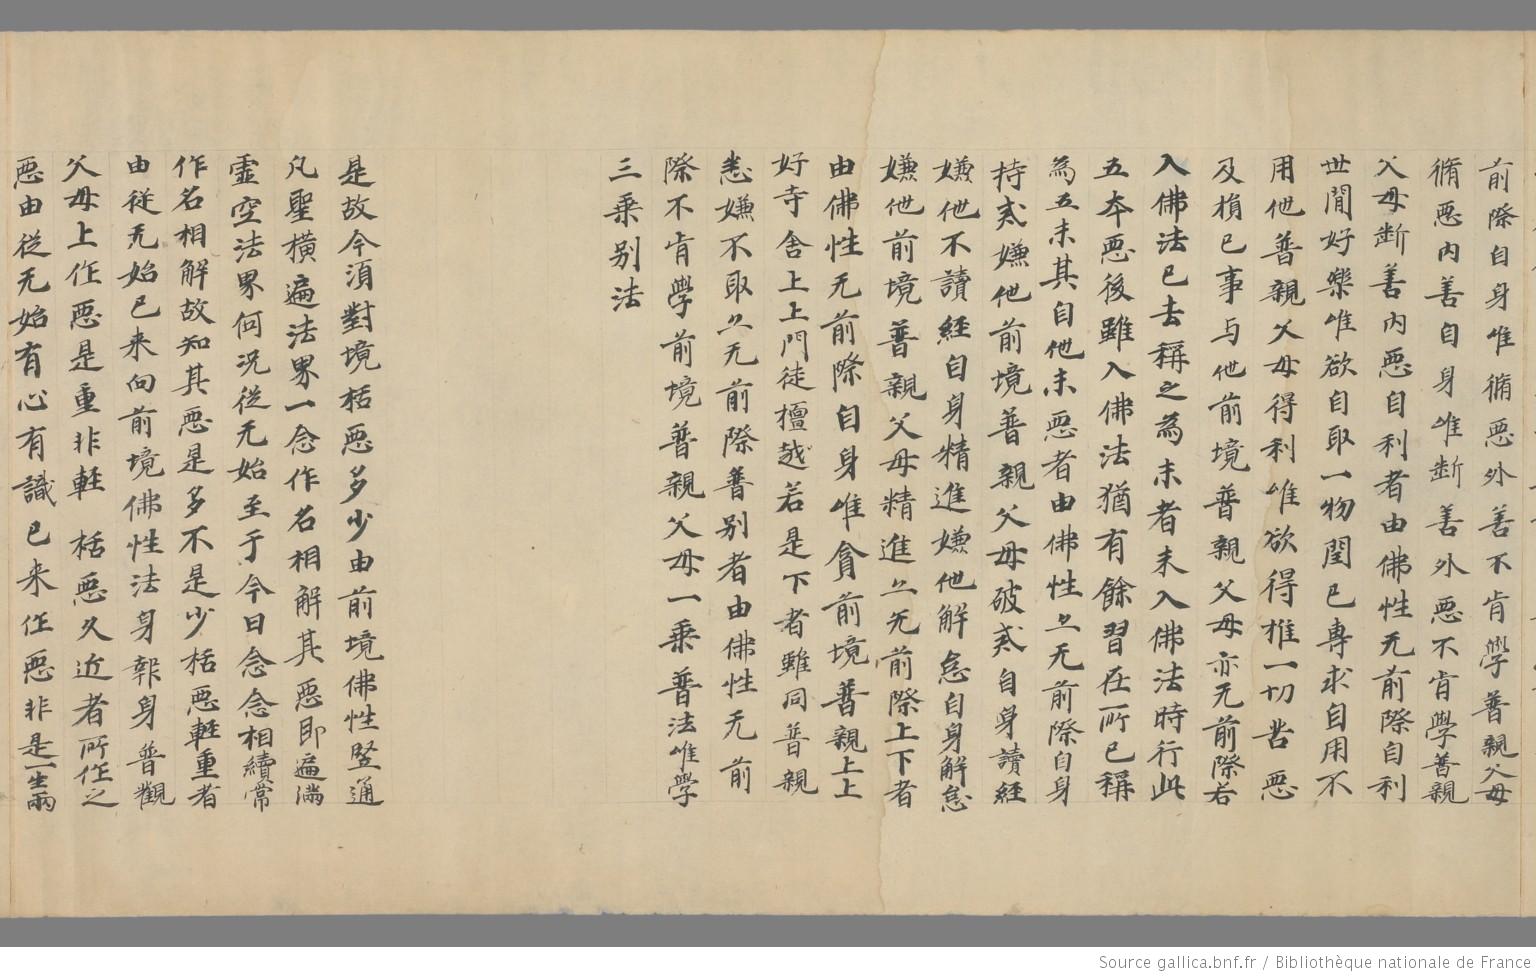 前際自身唯循惡外善不肯學普親父母
循惡內善自身唯断善外惡不肯學善親
父母断善內惡自利者由佛性无前際自利
世間好樂唯欲自取一物閏已專求自用不
用他普親父母得利唯欲得推一切苦惡
及損已事与他前境普親父母亦无前際若
入佛法已去稱之為末者未入佛法時行此
五夲惡後雖入佛法猶有餘習在所已稱
為五末其自他末惡者由佛性上无前際自身
持戒嫌他前境普親父母破戒自身讀經
嫌他不讀經自身精進嫌他解怠自身解怠
嫌他前境普親父母精進上无前際上下者
由佛性无前際自身唯貪前境善親上上
好寺舍上上門徒檀越若是下者雖同普親
悉嫌不取上无前際普别者由佛性无前
際不肯學前境普親父母一乘普法唯學
三乘别法
是故今須對境栝惡多少由前境佛性竪通
凡聖橫遍法界一念作名相解其惡即遍滿
虛空法界何況從无始至于今日念念相續常
作名相解故知其惡是多不是少栝惡輕重者
由從无始已来向前境佛性法身報身普觀
父母上作惡是重非輕 栝惡久近者所作之
惡由從无始有心有識已来作惡非是一生兩
Source gallica.bnf.fr / Bibliothèque nationale de France